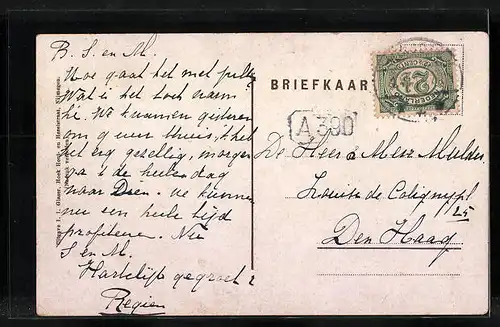 B. S. en M.
Hoe gaat het met jullie
Wat is het toch warm
hé. We kwamen gisteren
om 9 uur thuis, 't
het erg gezellig, morgen
ga 'k de heelen dag
naar. We kunnen
nu een heele tijd
profiteren. Nu
S en M.
Hartelijk gegroet
Regien
BRIEFKAAR
A 390
De Heer & Mevr Mulder
Louise de Colignypl
25
Den Haag
2½